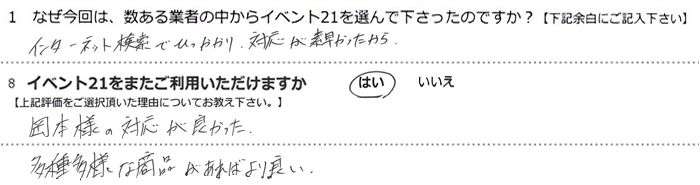 1 なぜ今回は、数ある業者の中からイベント21を選んで下さったのですか？【下記余白にご記入下さい】
インターネット検索でひっかかり、対応が素早かったから．
8 イベント21をまたご利用いただけますか はい いいえ
【上記評価をご選択頂いた理由についてお教え下さい。】
岡本様の対応が良かった．
多種多様な商品があればより良い．